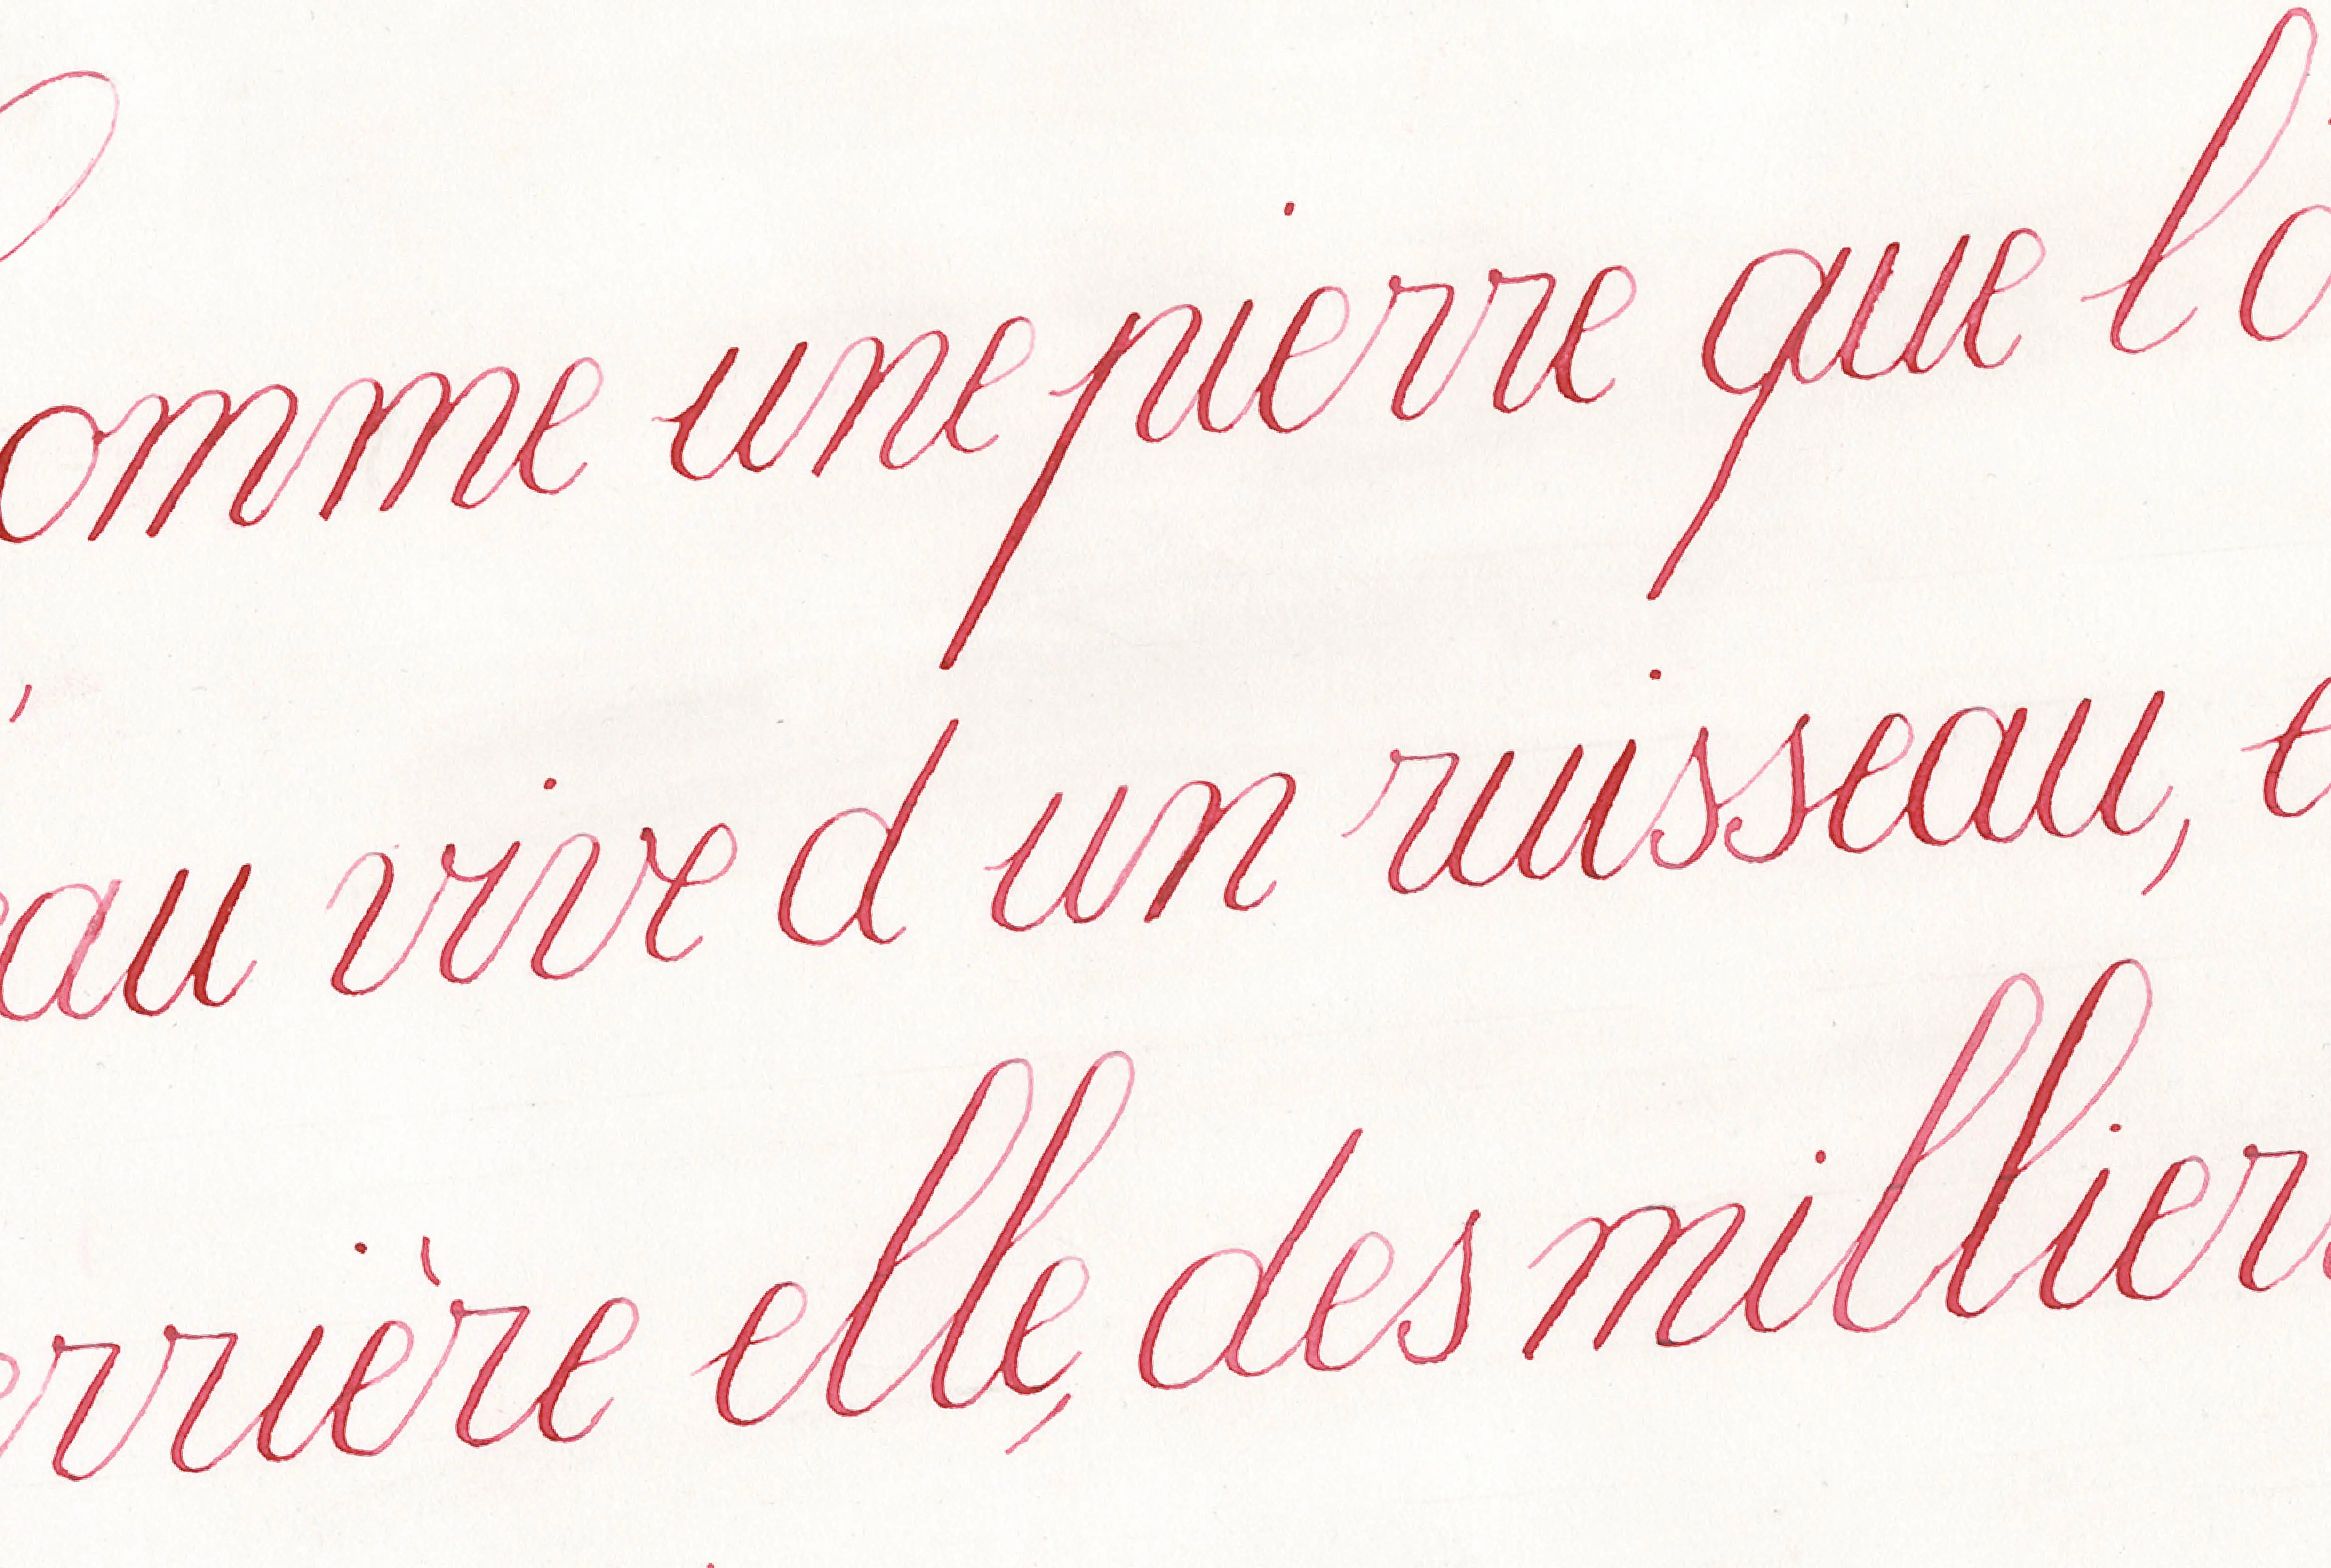 omme une pierre que l'o
eau vive d'un ruisseau, e
errière elle, des milliers